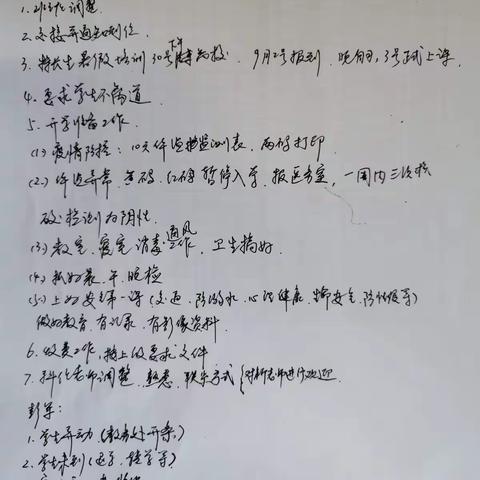 1. 班主任调整.
2. 交接并通知到位.
3. 特长生暑假培训30号下午离校. 9月2号报到, 晚自习, 3号正式上课.
4. 要求学生不离道
5. 开学准备工作.
(1) 疫情防控: 10天体温监测表、两码打印
(2) 体温异常、黄码、红码暂停入学, 报医务室, 一周内三次核
酸检测为阴性.
(3) 教室、寝室消毒通风工作, 卫生搞好.
(4) 抓好晨、午、晚检
(5) 上好安全第一课 (交通、防溺水、心理健康、安全、防性侵等)
做好教育, 有记录, 有影像资料.
6. 收费工作, 按上级要求文件
7. 科任老师调整, 熟悉、联系方式 {对新老师进行欢迎.
彭军:
1. 学生异动 (教务处开条.)
2. 学生未到 (退学、转学等)